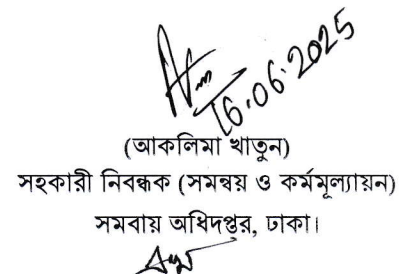 16.06.2025
(আকলিমা খাতুন)
সহকারী নিবন্ধক (সমন্বয় ও কর্মমূল্যায়ন)
সমবায় অধিদপ্তর, ঢাকা।